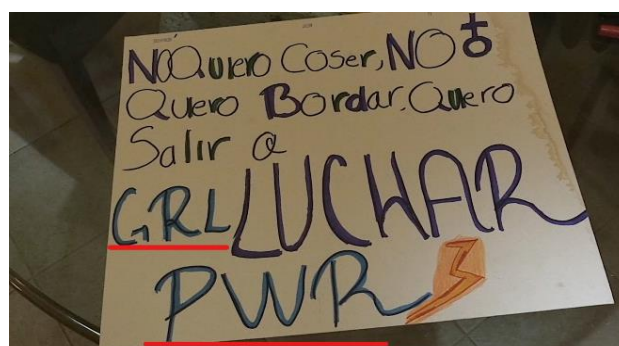 No Quiero Coser, NO
Quero Bordar. Quero
Salir a
GRL LUCHAR
PWR